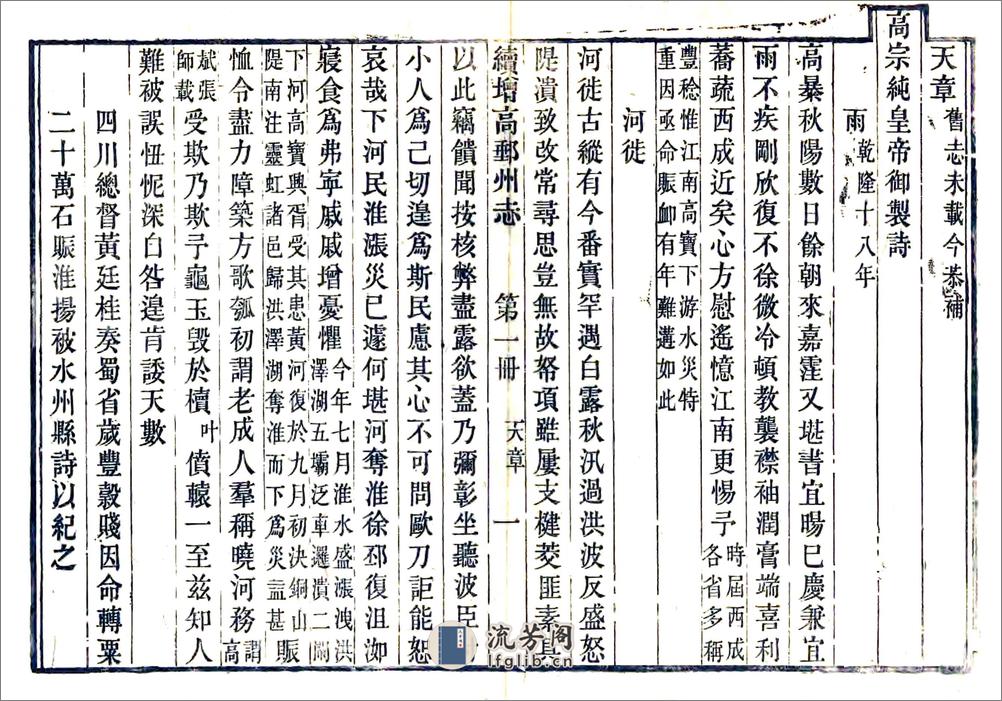 天章 舊志未載今恭補
高宗純皇帝御製詩
雨 乾隆十八年
高暴秋陽數日餘朝來嘉霔又堪書宜暘已慶兼宜
雨不疾剛欣復不徐微冷頓教襲襟袖潤膏端喜利
蕎蔬西成近矣心方慰遙憶江南更惕予 時屆西成各省多稱
豐稔惟江南高寶下游水災特重因亟命賑䘏有年難遘如此
河徙
河徙古縱有今番實罕遇白露秋汛過洪波反盛怒
隄潰致改常尋思豈無故帑項雖屢支楗茭匪素具
續增高郵州志 第一冊 天章 一
以此竊饋聞按核弊盡露欲蓋乃彌彰坐聽波臣
小人爲己切遑爲斯民慮其心不可問歐刀詎能恕
哀哉下河民淮漲災已遽何堪河奪淮徐邳復沮洳
寢食爲弗寧戚戚增憂懼 今年七月淮水盛漲洩洪澤湖五壩泛車邏潰二閘
下河高寶興胥受其患黃河復於九月初決銅山隄南注靈虹諸邑歸洪澤湖奪淮而下爲災益甚賑
恤令盡力障築方歌瓠初謂老成人羣稱曉河務 謂高
斌張師載 受欺乃欺予龜玉毀於櫝 叶 僨轅一至茲知人
難被誤忸怩深自咎遑肯諉天數
四川總督黃廷桂奏蜀省歲豐穀賤因命轉粟
二十萬石賑淮揚被水州縣詩以紀之
流芳阁
lfglib.cn